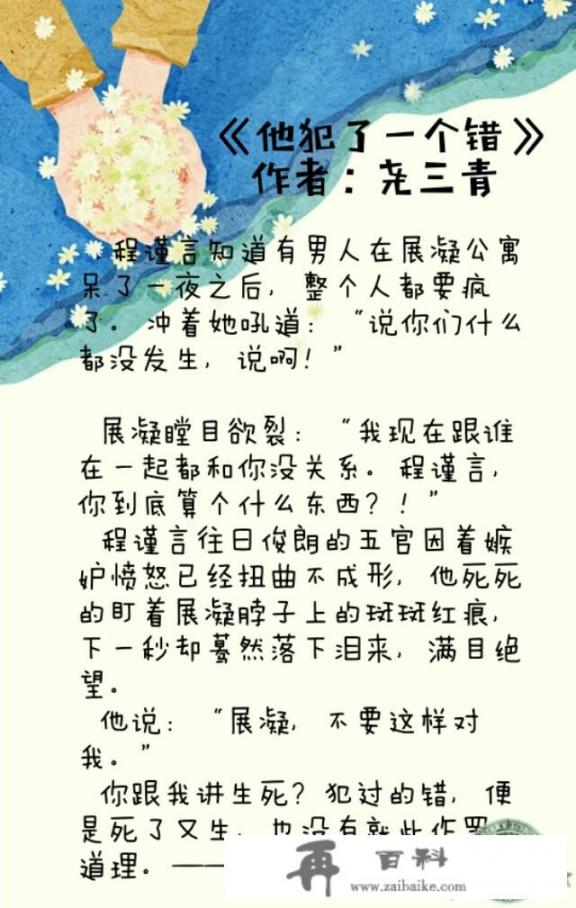 《他犯了一个错》
作者：尧三青
程谨言知道有男人在展凝公寓
呆了一夜之后，整个人都要疯
了。冲着她吼道：“说你们什么
都没发生，说啊！”
展凝瞠目欲裂：“我现在跟谁
在一起都和你没关系。程谨言，
你到底算个什么东西？！”
程谨言往日俊朗的五官因着嫉
妒愤怒已经扭曲不成形，他死死
的盯着展凝脖子上的斑斑红痕，
下一秒却蓦然落下泪来，满目绝
望。
他说：“展凝，不要这样对
我。”
你跟我讲生死？犯过的错，便
是死了又生，也没有就此作罢
道理。——
再百科
www.zaibaike.com